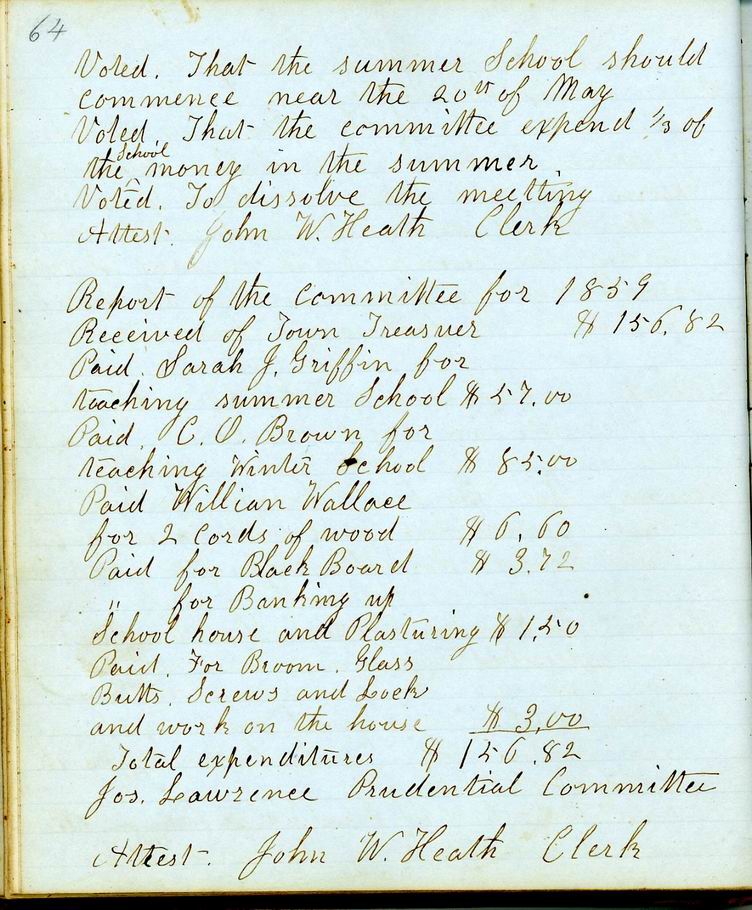 64
Voted. That the summer School should
commence near the 20th of May
Voted. That the committee expend 1/3 of
the School money in the summer
Voted. To dissolve the meetting
Attest. John W. Heath Clerk
Report of the Committee for 1859
Received of Town Treasuer $ 156.82
Paid. Sarah J. Griffin for
teaching summer School $ 57.00
Paid. C. O. Brown for
teaching Winter School $ 85.00
Paid Willian Wallace
for 2 Cords of wood $ 6.60
Paid for Black Board $ 3.72
" for Banking up
School house and Plasturing $ 1.50
Paid. For Broom. Glass
Butts. Screws and Lock
and work on the house $ 3.00
Total expenditures $ 156.82
Jos. Lawrence Prudential Committee
Attest. John W. Heath Clerk